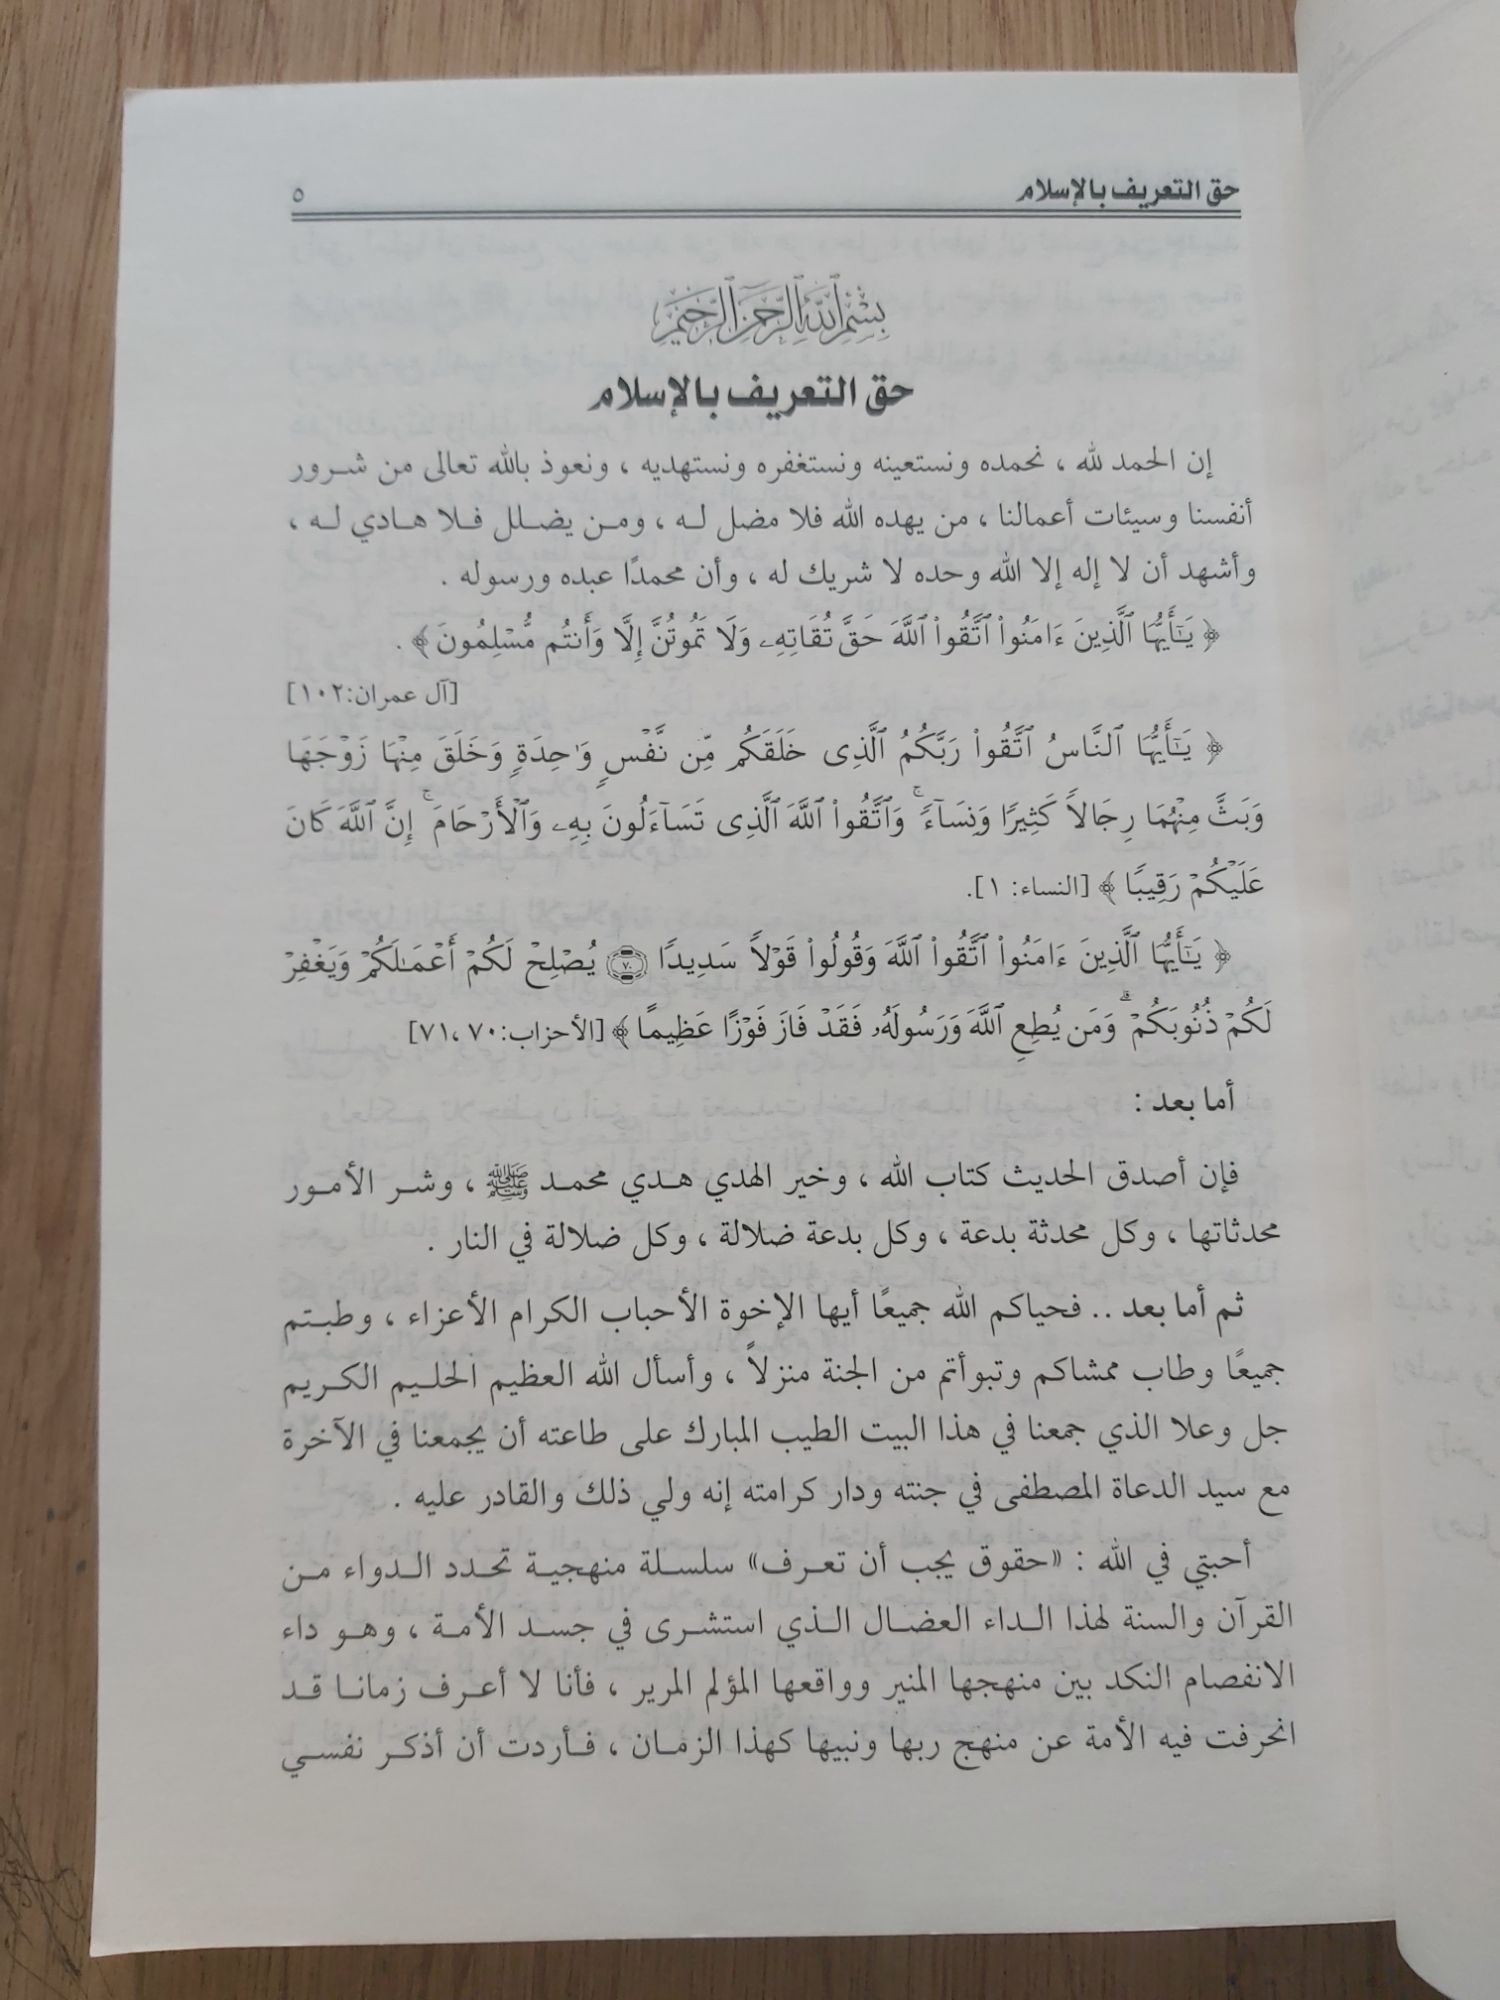 حق التعريف بالإسلام ٥
بِسْمِ ٱللَّهِ ٱلرَّحْمَٰنِ ٱلرَّحِيمِ
حق التعريف بالإسلام
إن الحمد لله ، نحمده ونستعينه ونستغفره ونستهديه ، ونعوذ بالله تعالى من شرور
أنفسنا وسيئات أعمالنا ، من يهده الله فلا مضل له ، ومن يضلل فلا هادي له ،
وأشهد أن لا إله إلا الله وحده لا شريك له ، وأن محمدًا عبده ورسوله .
﴿ يَـٰٓأَيُّهَا ٱلَّذِينَ ءَامَنُوا۟ ٱتَّقُوا۟ ٱللَّهَ حَقَّ تُقَاتِهِۦ وَلَا تَمُوتُنَّ إِلَّا وَأَنتُم مُّسْلِمُونَ ﴾ .
[آل عمران:١٠٢]
﴿ يَـٰٓأَيُّهَا ٱلنَّاسُ ٱتَّقُوا۟ رَبَّكُمُ ٱلَّذِى خَلَقَكُم مِّن نَّفْسٍ وَٰحِدَةٍ وَخَلَقَ مِنْهَا زَوْجَهَا
وَبَثَّ مِنْهُمَا رِجَالاً كَثِيرًا وَنِسَآءً ۚ وَٱتَّقُوا۟ ٱللَّهَ ٱلَّذِى تَسَآءَلُونَ بِهِۦ وَٱلْأَرْحَامَ ۚ إِنَّ ٱللَّهَ كَانَ
عَلَيْكُمْ رَقِيبًا ﴾ [النساء: ١].
﴿ يَـٰٓأَيُّهَا ٱلَّذِينَ ءَامَنُوا۟ ٱتَّقُوا۟ ٱللَّهَ وَقُولُوا۟ قَوْلاً سَدِيدًا ٧٠ يُصْلِحْ لَكُمْ أَعْمَـٰلَكُمْ وَيَغْفِرْ
لَكُمْ ذُنُوبَكُمْ ۗ وَمَن يُطِعِ ٱللَّهَ وَرَسُولَهُۥ فَقَدْ فَازَ فَوْزًا عَظِيمًا ﴾ [الأحزاب:٧٠ ،٧١]
أما بعد :
فإن أصدق الحديث كتاب الله ، وخير الهدي هدي محمد ﷺ ، وشر الأمور
محدثاتها ، وكل محدثة بدعة ، وكل بدعة ضلالة ، وكل ضلالة في النار .
ثم أما بعد .. فحياكم الله جميعًا أيها الإخوة الأحباب الكرام الأعزاء ، وطبتم
جميعًا وطاب ممشاكم وتبوأتم من الجنة منزلاً ، وأسأل الله العظيم الحليم الكريم
جل وعلا الذي جمعنا في هذا البيت الطيب المبارك على طاعته أن يجمعنا في الآخرة
مع سيد الدعاة المصطفى في جنته ودار كرامته إنه ولي ذلك والقادر عليه .
أحبتي في الله : «حقوق يجب أن تعرف» سلسلة منهجية تحدد الدواء من
القرآن والسنة لهذا الداء العضال الذي استشرى في جسد الأمة ، وهو داء
الانفصام النكد بين منهجها المنير وواقعها المؤلم المرير ، فأنا لا أعرف زمانا قد
انحرفت فيه الأمة عن منهج ربها ونبيها كهذا الزمان ، فأردت أن أذكر نفسي